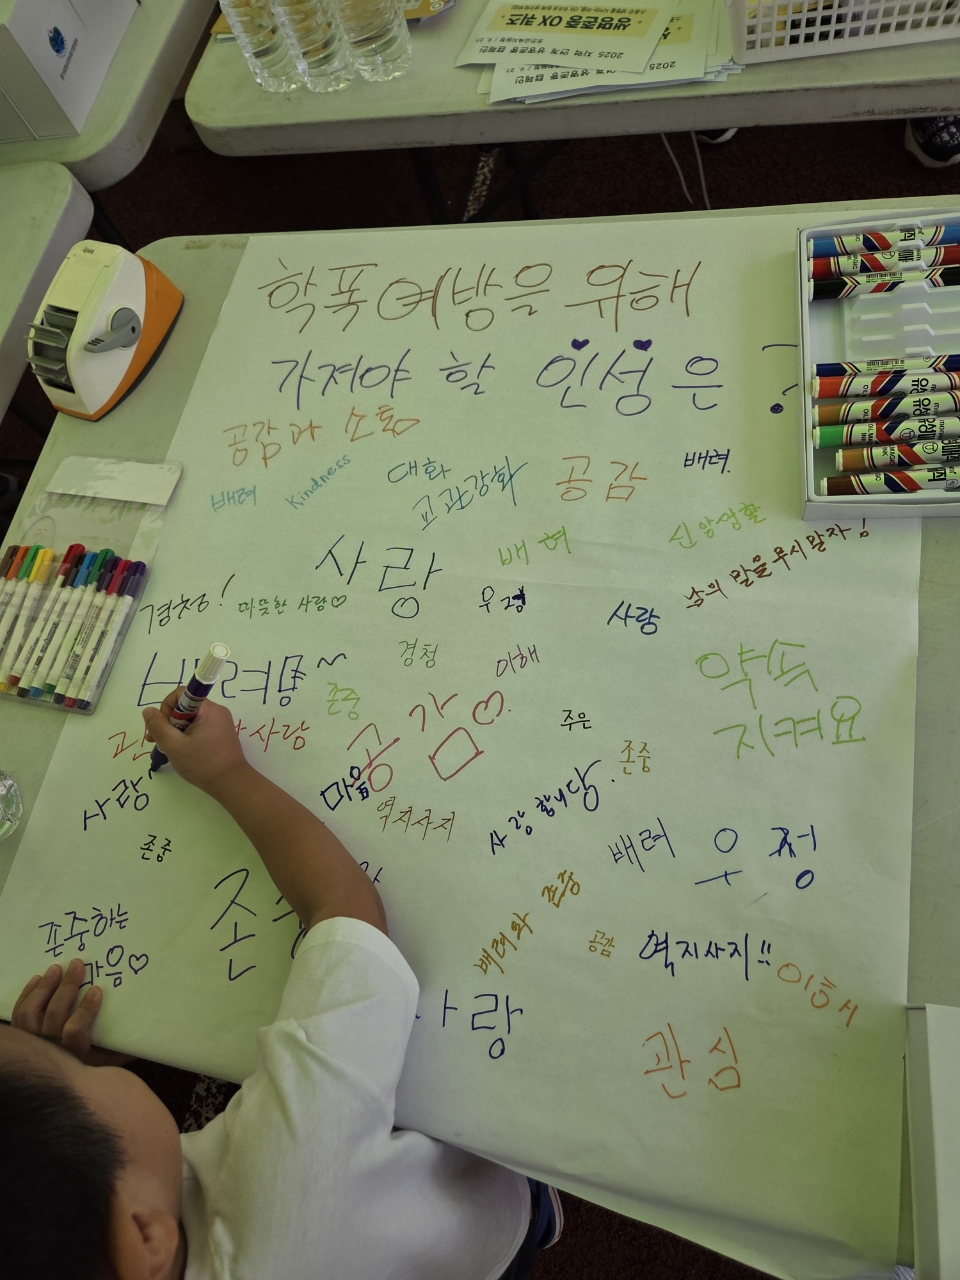 생명존중 OX 퀴즈
2025 지역 연계 생명존중 캠페인
2025
학폭예방을 위해
가져야 할 인성은?
공감과 소통
배려
kindness
대화
교관강화
공감
배려.
사랑
배려
신앙생활
남의 말을 무시말자!
경청!
따뜻한 사랑♡
우정
사랑
경청
이해
약속
지켜요
존중
공감♡.
사랑
주은
존중
사랑
마음
역지사지
사랑합니당.
배려
우정
존중
존중하는
마음♡
배려와 존중
공감
역지사지!!
이해
관심